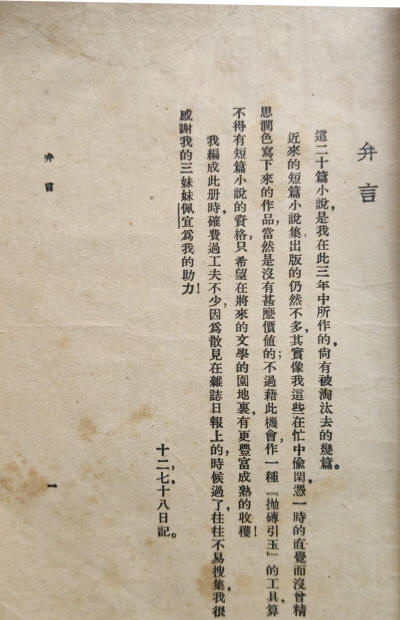 弁言
這二十篇小說，是我在此三年中所作的，尙有被淘汰去的幾篇。
近來的短篇小說集出版的仍然不多，其實像我這些在忙中偸閑，憑一時的直覺而沒曾精
思潤色寫下來的作品，當然是沒有甚麼價値的；不過藉此機會，作一種『拋磚引玉』的工具，算
不得有短篇小說的資格，只希望在將來的文學的園地裏，有更豐富成熟的收穫！
我編成此册時，確費過工夫不少，因爲散見在雜誌日報上的，時候過了往往不易搜集，我很
感謝我的三妹妹佩宜爲我的助力！
十二，七，十八日記。
弁言
一